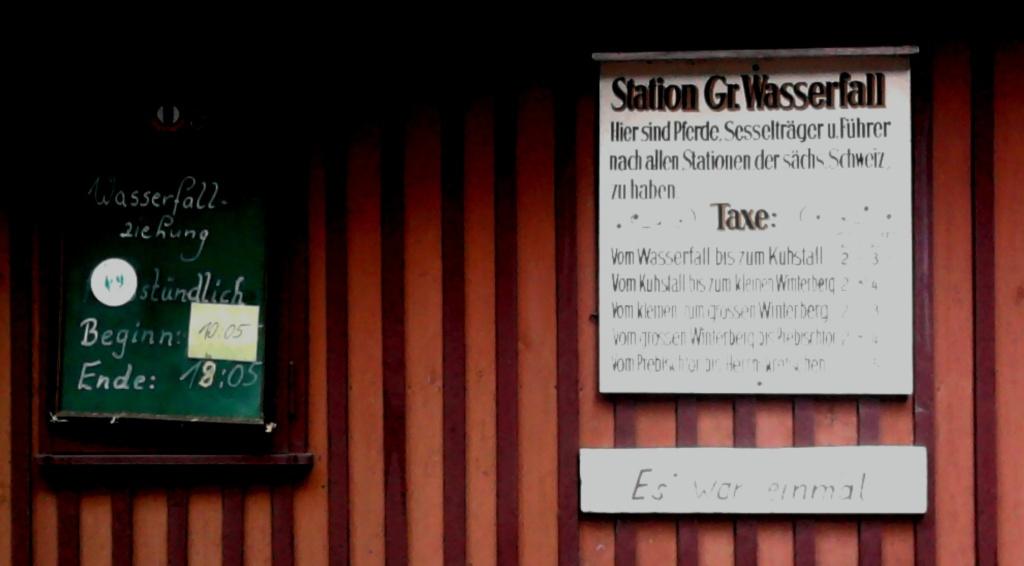 Wasserfall-
ziehung
stündlich
Beginn: 10.05
Ende: 18:05
Station Gr. Wasserfall
Hier sind Pferde, Sesselträger u. Führer
nach allen Stationen der sächs. Schweiz
zu haben
Taxe:
Vom Wasserfall bis zum Kuhstall 2 - 3
Vom Kuhstall bis zum kleinen Winterberg 2 - 4
Vom kleinen zum grossen Winterberg 2 3
Vom grossen Winterberg bis Prebischtor 2 - 4
Vom Prebischtor bis
Es war einmal